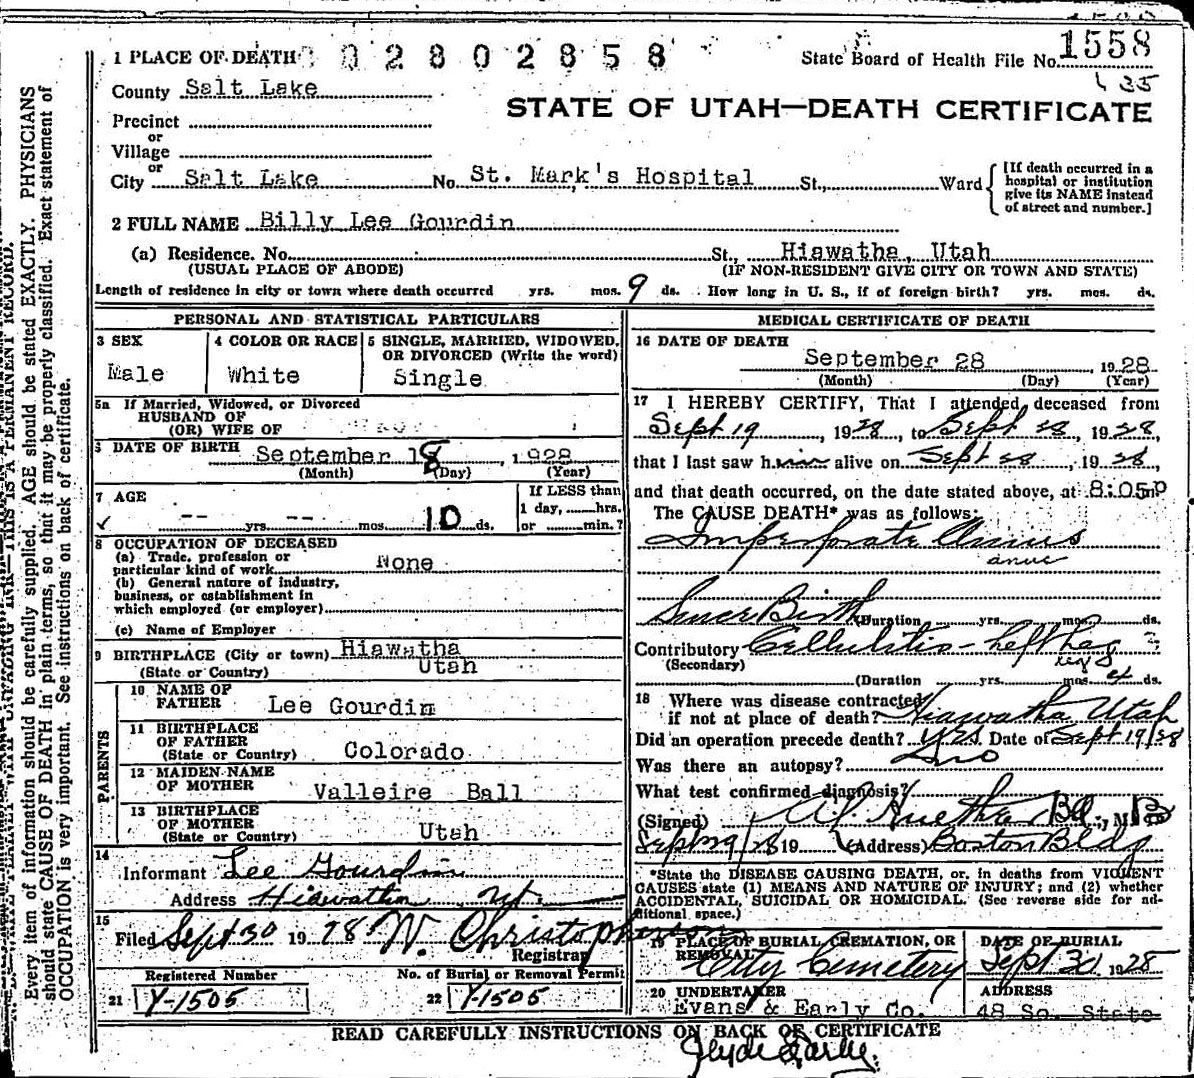 1 PLACE OF DEATH 0 2 8 0 2 8 5 8
State Board of Health File No. 1558
35
County Salt Lake
STATE OF UTAH—DEATH CERTIFICATE
Precinct
or
Village
or
City Salt Lake No. St. Mark's Hospital St., Ward
[If death occurred in a
hospital or institution
give its NAME instead
of street and number.]
2 FULL NAME Billy Lee Gourdin
(a) Residence. No. St., Hiawatha, Utah
(USUAL PLACE OF ABODE) (IF NON-RESIDENT GIVE CITY OR TOWN AND STATE)
Length of residence in city or town where death occurred yrs. mos. 9 ds. How long in U. S., if of foreign birth? yrs. mos. ds.
PERSONAL AND STATISTICAL PARTICULARS
3 SEX
Male
4 COLOR OR RACE
White
5 SINGLE, MARRIED, WIDOWED,
OR DIVORCED (Write the word)
Single
5a If Married, Widowed, or Divorced
HUSBAND OF
(OR) WIFE OF
6 DATE OF BIRTH September 18, 1928
(Month) (Day) (Year)
7 AGE
-- yrs. -- mos. 10 ds.
If LESS than
1 day, ......hrs.
or ......min.?
8 OCCUPATION OF DECEASED
(a) Trade, profession or
particular kind of work None
(b) General nature of industry,
business, or establishment in
which employed (or employer)
(c) Name of Employer
9 BIRTHPLACE (City or town) Hiawatha
(State or Country) Utah
PARENTS
10 NAME OF
FATHER Lee Gourdin
11 BIRTHPLACE
OF FATHER
(State or Country) Colorado
12 MAIDEN NAME
OF MOTHER Valleire Ball
13 BIRTHPLACE
OF MOTHER
(State or Country) Utah
14
Informant Lee Gourdin
Address Hiawatha Ut.
15
Filed Sept 30 1928 W. Christopherson
Registrar
Registered Number
21 Y-1505
No. of Burial or Removal Permit
22 Y-1505
MEDICAL CERTIFICATE OF DEATH
16 DATE OF DEATH
September 28, 1928
(Month) (Day) (Year)
17 I HEREBY CERTIFY, That I attended deceased from
Sept 19, 1928, to Sept 28, 1928,
that I last saw him alive on Sept 28, 1928,
and that death occurred, on the date stated above, at 8:05p m
The CAUSE DEATH* was as follows:
Imperforate Anus
anus
Since Birth (Duration yrs. mos. ds.
Contributory Cellulitis - left Leg
(Secondary) legs
(Duration yrs. mos. 4 ds.
18 Where was disease contracted
if not at place of death? Hiawatha Utah
Did an operation precede death? yes Date of Sept 19/28
Was there an autopsy? no
What test confirmed diagnosis?
(Signed) M. D.
Sept 29/28 19 (Address) Boston Bldg
*State the DISEASE CAUSING DEATH, or, in deaths from VIOLENT
CAUSES state (1) MEANS AND NATURE OF INJURY; and (2) whether
ACCIDENTAL, SUICIDAL OR HOMICIDAL. (See reverse side for ad-
ditional space.)
19 PLACE OF BURIAL CREMATION, OR
REMOVAL
City Cemetery
DATE OF BURIAL
Sept 30 1928
20 UNDERTAKER
Evans & Early Co.
ADDRESS
48 So. State
READ CAREFULLY INSTRUCTIONS ON BACK OF CERTIFICATE
Clyde Early.
Every item of information should be carefully supplied. AGE should be stated EXACTLY. PHYSICIANS
should state CAUSE OF DEATH in plain terms, so that it may be properly classified. Exact statement of
OCCUPATION is very important. See instructions on back of certificate.
THIS IS A PERMANENT RECORD.